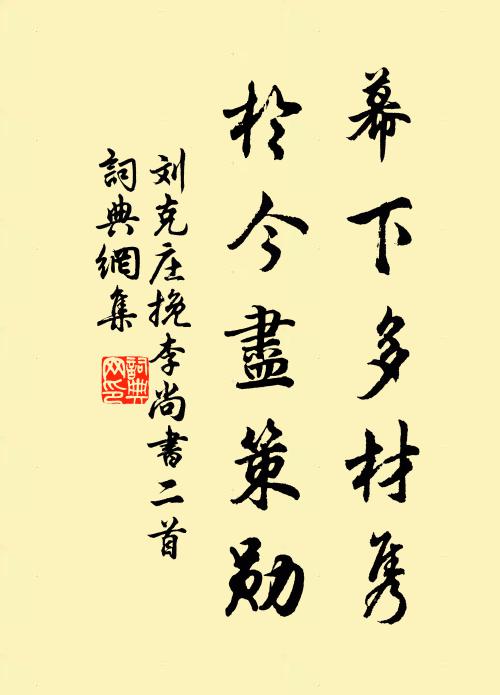 幕下多材隽
於今盡策勋
刘克庄挽李尚書二首
詞典網集
詞典网印